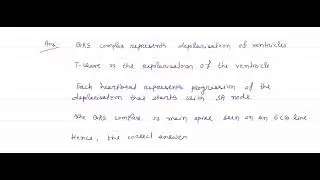 Ans: QRS complex represents depolarisation of ventricles
T-wave is the repolarisation of the ventricle
Each heartbeat represents progression of the
depolarisation that starts with SA node
The QRS complex is main spike seen on an ECG line.
Hence, the correct answer